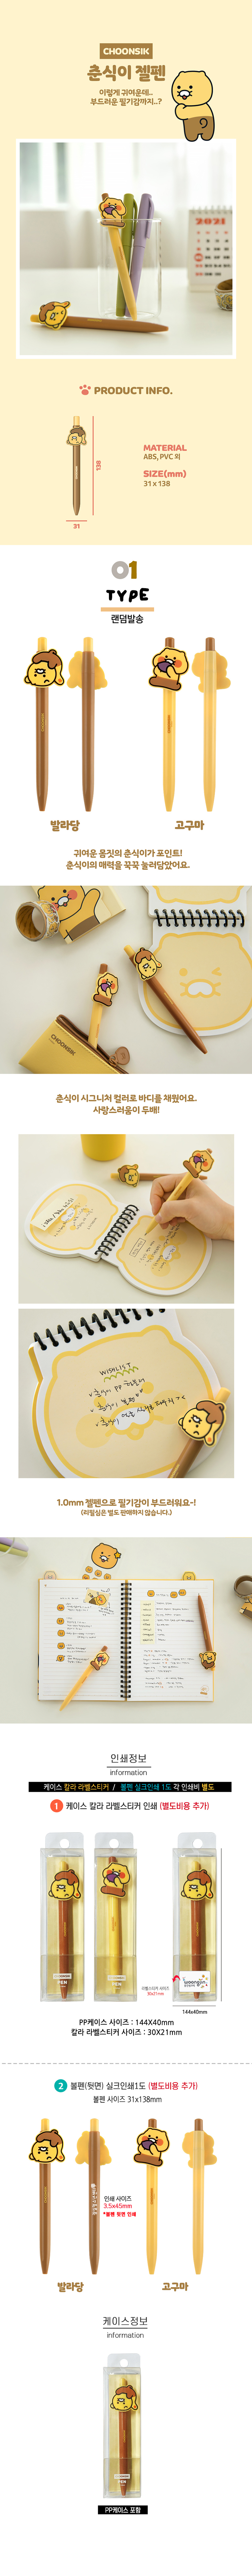 CHOONSIK
춘식이 젤펜
이렇게 귀여운데..
부드러운 필기감까지..?
2021
PRODUCT INFO.
138
31
MATERIAL
ABS, PVC 외
SIZE(mm)
31 x 138
01
TYPE
랜덤발송
발라당
고구마
귀여운 몸짓의 춘식이가 포인트!
춘식이의 매력을 꾹꾹 눌러담았어요.
CHOONSIK
춘식이 시그니처 컬러로 바디를 채웠어요.
사랑스러움이 두배!
WISHLIST
1.0mm 젤펜으로 필기감이 부드러워요~!
(리필심은 별도 판매하지 않습니다.)
인쇄정보
information
케이스 칼라 라벨스티커 / 볼펜 실크인쇄 1도 각 인쇄비 별도
1 케이스 칼라 라벨스티커 인쇄 (별도비용 추가)
CHOONSIK
PEN
CHOONSIK
PEN
라벨스티커 사이즈
30x21mm
woongjin
144x40mm
PP케이스 사이즈 : 144X40mm
칼라 라벨스티커 사이즈 : 30X21mm
2 볼펜(뒷면) 실크인쇄1도 (별도비용 추가)
볼펜 사이즈 31x138mm
인쇄 사이즈
3.5x45mm
*볼펜 뒷면 인쇄
발라당
고구마
케이스정보
information
CHOONSIK
PEN
PP케이스 포함